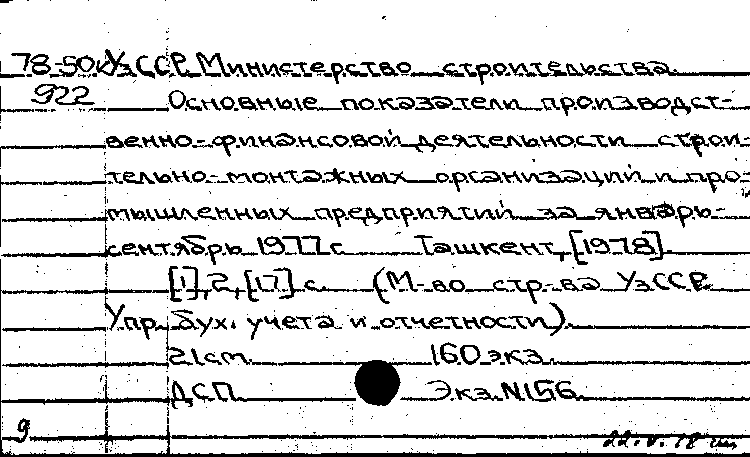 78-50к УзССР. Министерство строительства.
922 Основные показатели производст-
венно-финансовой деятельности строи-
тельно-монтажных организаций и про-
мышленных предприятий за январь-
сентябрь 1977 г. Ташкент, [1978].
[1], 2, [17] с. (М-во стр-ва УзССР.
Упр. бух. учета и отчетности).
21 см. 160 экз.
ДСП. Экз. N156.
9